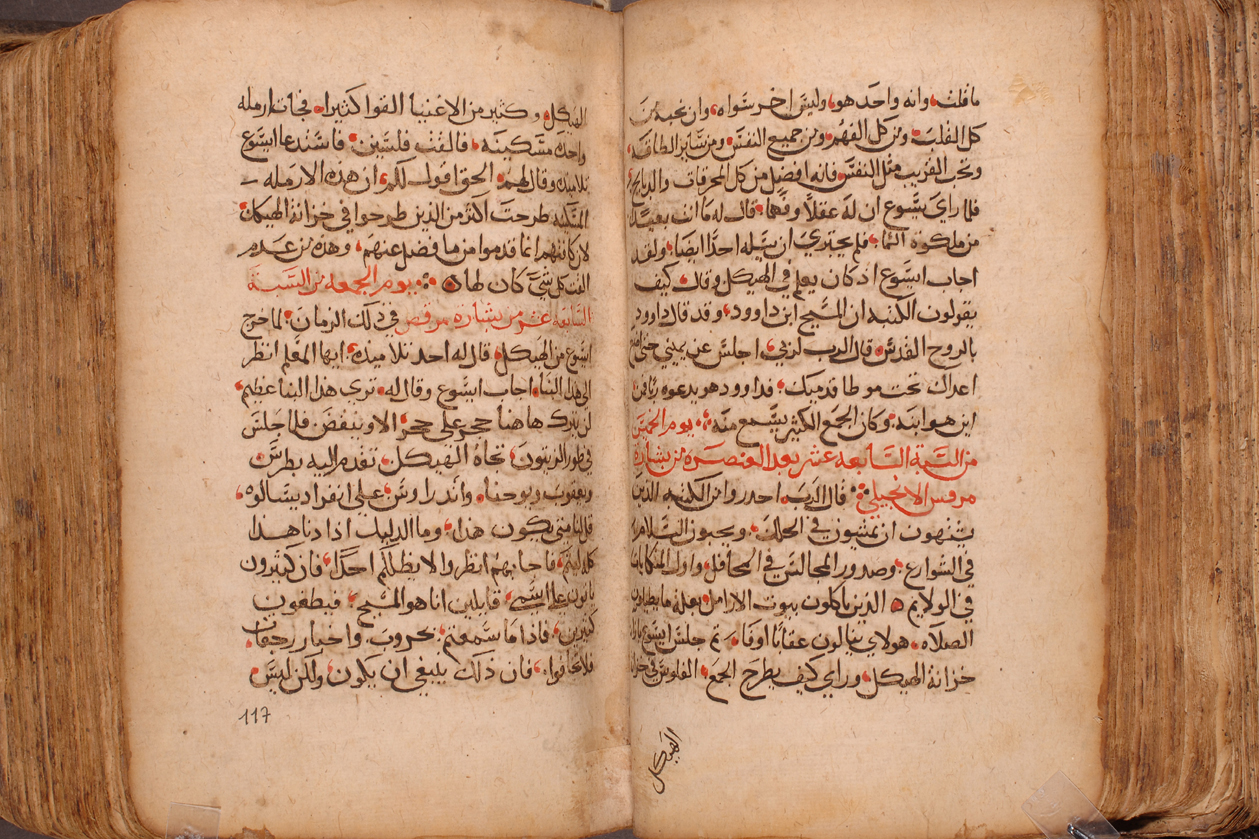 ما قلت، وانه واحد هو، وليس اخر سواه، وان نحبه من
كل القلب، ومن كل الفهم، ومن جميع النفس ومن سائر الطاقه،
ونحب القريب مثل النفس فانه افضل من كل المحرقات والدبايح،
فلما راي يسوع ان له عقلاً وفهما، قال له ما انت ببعيد
من ملكوة السما، فلم يجتري ان يسيله احدًا ايضا، ولقد
اجاب ايسوع اد كان يعلم في الهيكل وقال، كيف
يقولون الكتبه ان المسيح ابن داوود، وقد قال داوود
بالروح القدس، قال الرب لربي، اجلس عن يميني حتي اضع
اعداك تحت موطا قدميك، فداوود هو يدعوه ربًا فمن
اين هو ابنه، وكان الجمع الكثير يسمع منه ܀ يوم الخميس
من السبة السابعه عشر بعد العنصره من بشارة
مرقس الانجيلي ܀ قال الرب، احدروا من الكتبه الذين
يشتهون ان يمشون في الحلل، ويحبون السلام
في الشوارع، وصدور المجالس في المحافل، واول المتكايات
في الولايم، الذين ياكلون بيوت الارامل بعلة ما يطيلون
الصلاه، هولاي ينالون عقابًا اوفا، تم جلس ايسوع بازا
خزانة الهيكل، وراي كيف يطرح الجمع، الفلوس في خزانة
الهيكل
الهيكل، وكثير من الاغنيا القوا كثيرا، فجات ارمله
واحده مسكينه، فالقت فلسين، فاستدعا ايسوع
تلاميده وقال لهم، الحق اقول لكم، ان هده الارمله
المسكينه طرحت اكثر من الذين طرحوا في خزانة الهيكل،
لان كافتهم انما قدموا من ما فضل عنهم، وهده من عدم
القت كل شي كان لها ܀ يوم الجمعه من السبة
السابعه عشر من بشارة مرقص في دلك الزمان، لما خرج
ايسوع من الهيكل، قال له احد تلاميده، ايها المعلم انظر
الي هدا البنا، اجاب ايسوع وقال له، تري هدا البنا عظيم،
لن يترك هاهنا حجر علي حجر الا وينقض، فلما جلس
في طور الزيتون، تجاه الهيكل، تقدم اليه بطرس
ويعقوب ويوحنا، واندراوس، علي انفراد يسالوه،
قل لنا متي يكون هذا، وما الدليل ادا دنا هدا
كله ليتم، فاجابهم انظروا لا يظلكم احدًا، فان كثيرون
ياتون علي اسمي، قايلين انا هو المسيح، فيطغون
كثيرين، فاذا ما سمعتم، بحروب، واخبار زحفات،
فلا تخافوا، فان دلك ينبغي ان يكون، ولكن ليس
117